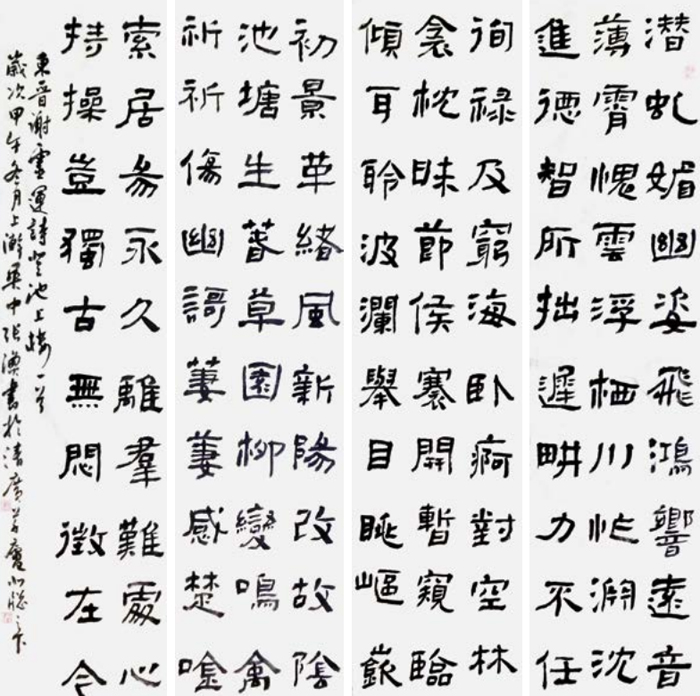 潜虬媚幽姿飛鴻響遠音
薄霄愧雲浮栖川怍淵沈
進德智所拙遲畊力不任
徇祿及窮海卧痾對空林
衾枕昧節侯褰開暫窺臨
傾耳聆波瀾舉目眺嶇嶔
初景革緒風新陽改故陰
池塘生萅草園柳變鳴禽
祈祈傷幽謌萋萋感楚唫
索居易永久離羣難處心
持操豈獨古無悶徵在今
東晉謝靈運詩登池上樓一首
歲次甲午冬月上澣吳中張渙書於清北牕之下